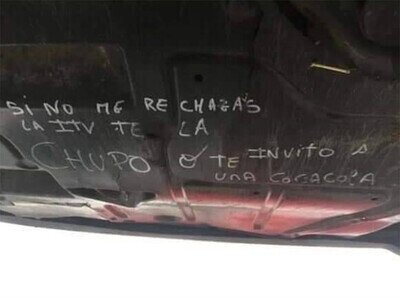 Si NO ME RECHAZAS
LA ITV TE LA
CHUPO O TE INVITO A
UNA COCACOLA